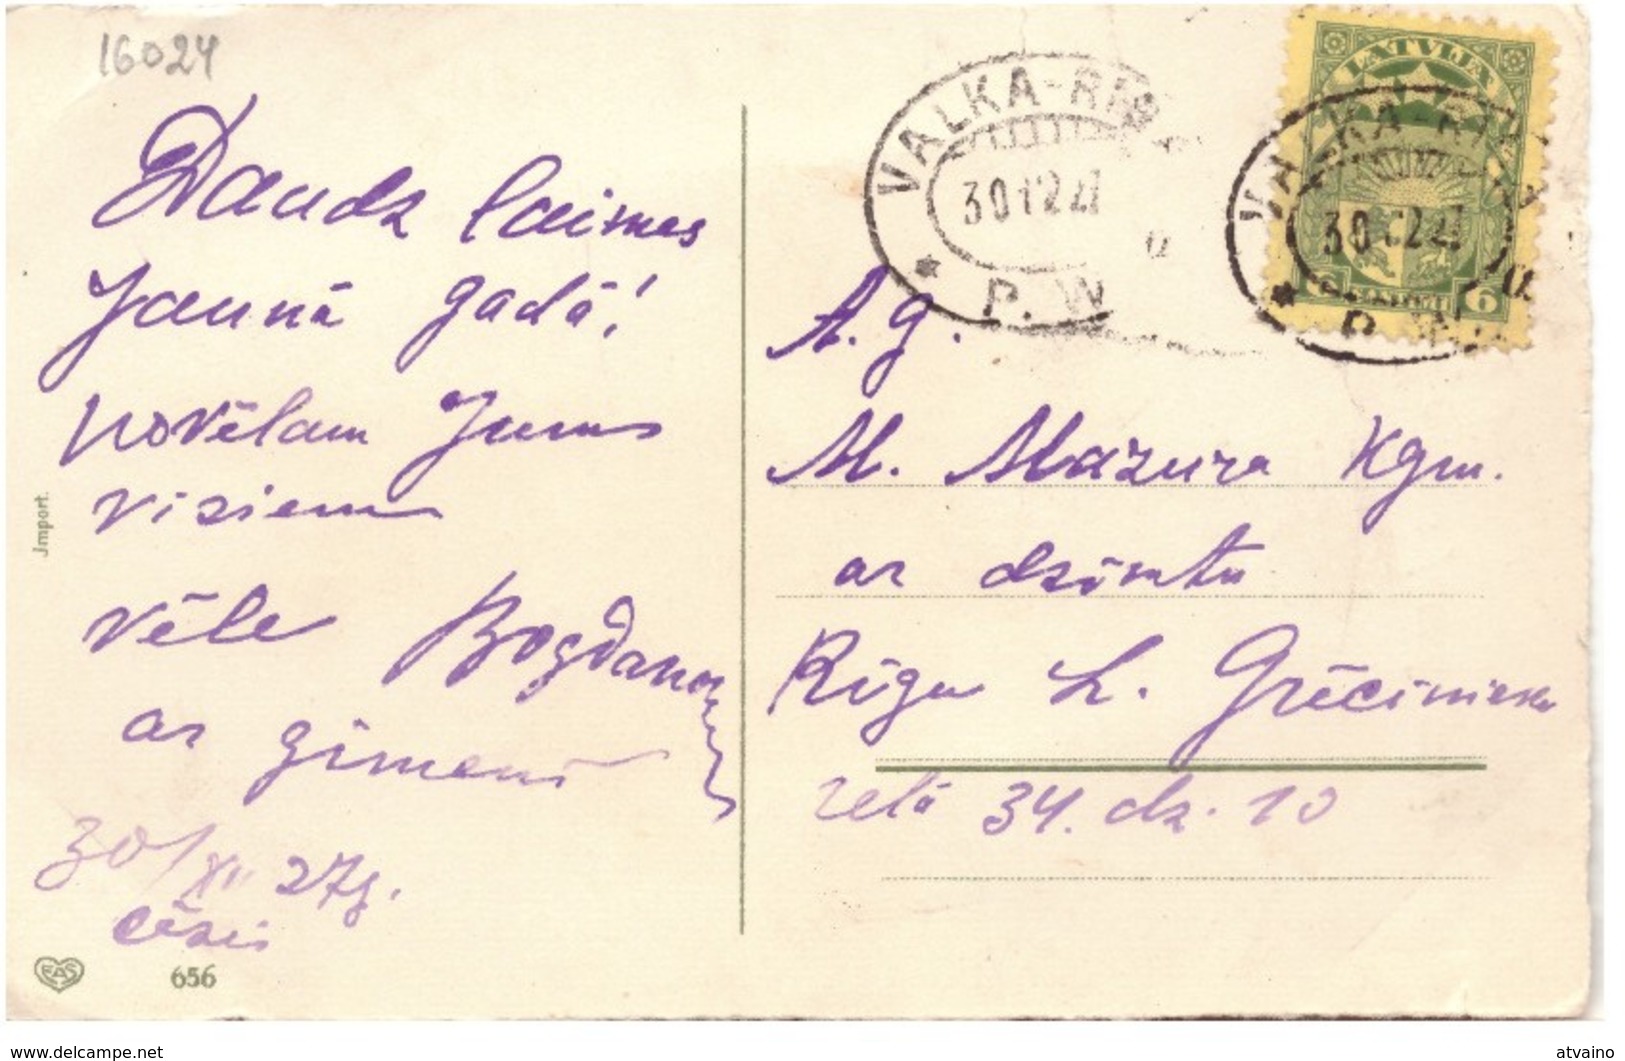 16024
Daudz laimes
Jaunā gadā!
novēlam Jums
visiem
vēle Bogdanow
ar ģimeni
30/XII 27g.
Cēsis
Jmport.
EAS
656
VALKA-RIGA
30 12 27
P. W
LATVIJA
VALKA-RIGA
30 12 27
6 6
P. W.
A. g.
M. Mazura kgm.
ar dzimtu
Rīgā L. Grēcinieku
ielā 34. dz. 10
www.delcampe.net
atvaino